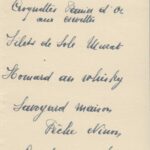 Croquettes Pernin et Or
aux crevettes
Filets de Sole Murat
Homard au whisky
Sauvgard maison
Pêche Ninon